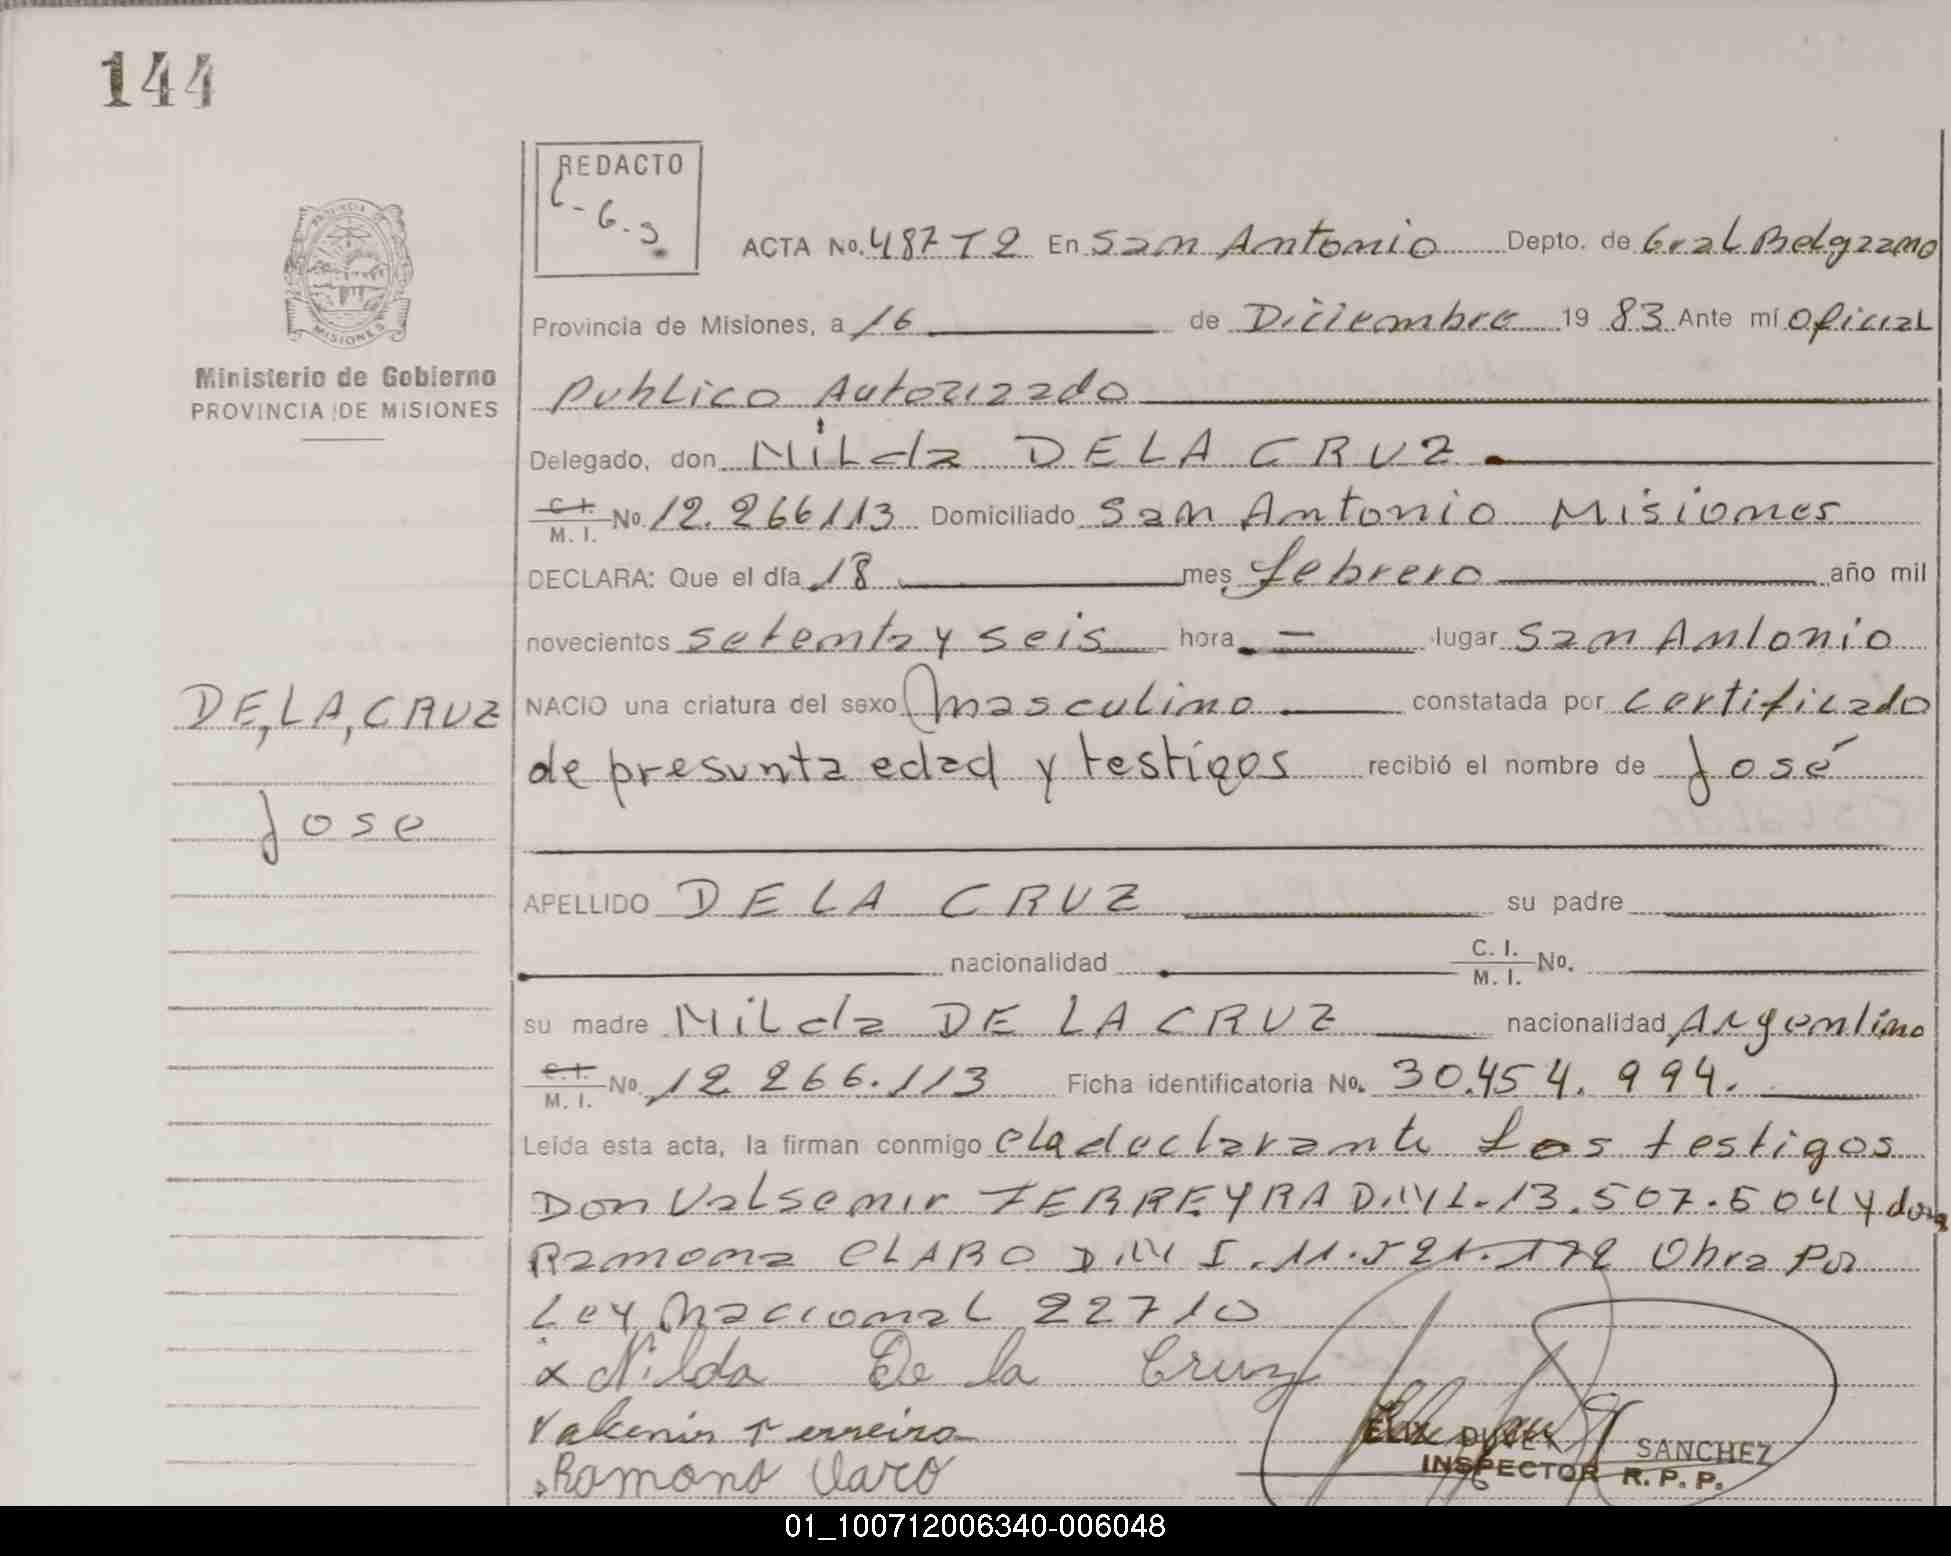 144
REDACTO
6-6.3
ACTA No. 487 T2 En San Antonio Depto. de Gral Belgrano
Provincia de Misiones, a 16 de Diciembre 19 83 Ante mí Oficial
Publico Autorizado
PROVINCIA DE MISIONES
Ministerio de Gobierno
PROVINCIA DE MISIONES
Delegado, don Nilda DE LA CRUZ
C. I. M. I. No. 12.266113 Domiciliado San Antonio Misiones
DECLARA: Que el día 18 mes febrero año mil
novecientos setenta y seis hora — lugar San Antonio
DE, LA, CRUZ
NACIO una criatura del sexo masculino constatada por certificado
de presunta edad y testigos recibió el nombre de José
Jose
APELLIDO DE LA CRUZ su padre
nacionalidad C. I. M. I. No.
su madre Nilda DE LA CRUZ nacionalidad Argentina
C. I. M. I. No. 12 266.113 Ficha identificatoria No. 30.454.994.
Leída esta acta, la firman conmigo la declarante Los testigos
Don Valsemir FERREYRA D.M.I. 13.507.504 y dona
Ramona CLARO D M I. 11.521.172 Obra Por
Ley Nacional 22710
x Nilda De la Cruz
Ferreira
Ramona Claro
SANCHEZ
INSPECTOR R. P. P.
01_100712006340-006048